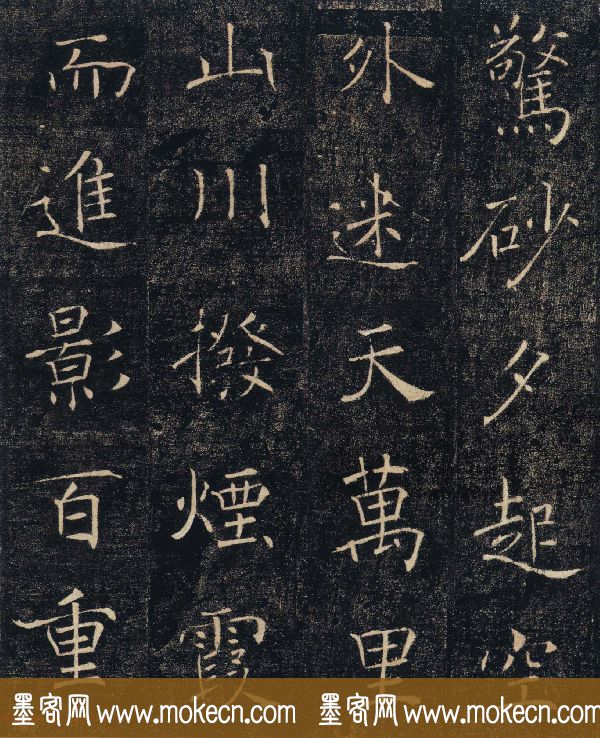 驚砂夕起空
外迷天萬里
山川撥煙霞
而進影百重
墨客网 www.mokecn.com 墨客网 www.mokecn.com